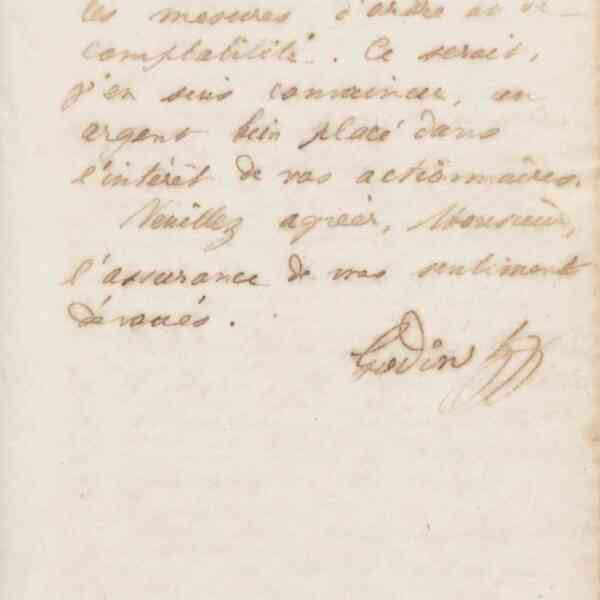 les mesures d'ordre et de
comptabilité. Ce serait,
j'en suis convaincu, un
argent bien placé dans
l'intérêt de vos actionnaires.
Veuillez agréer, Monsieur,
l'assurance de mes sentiments
dévoués.
Godin